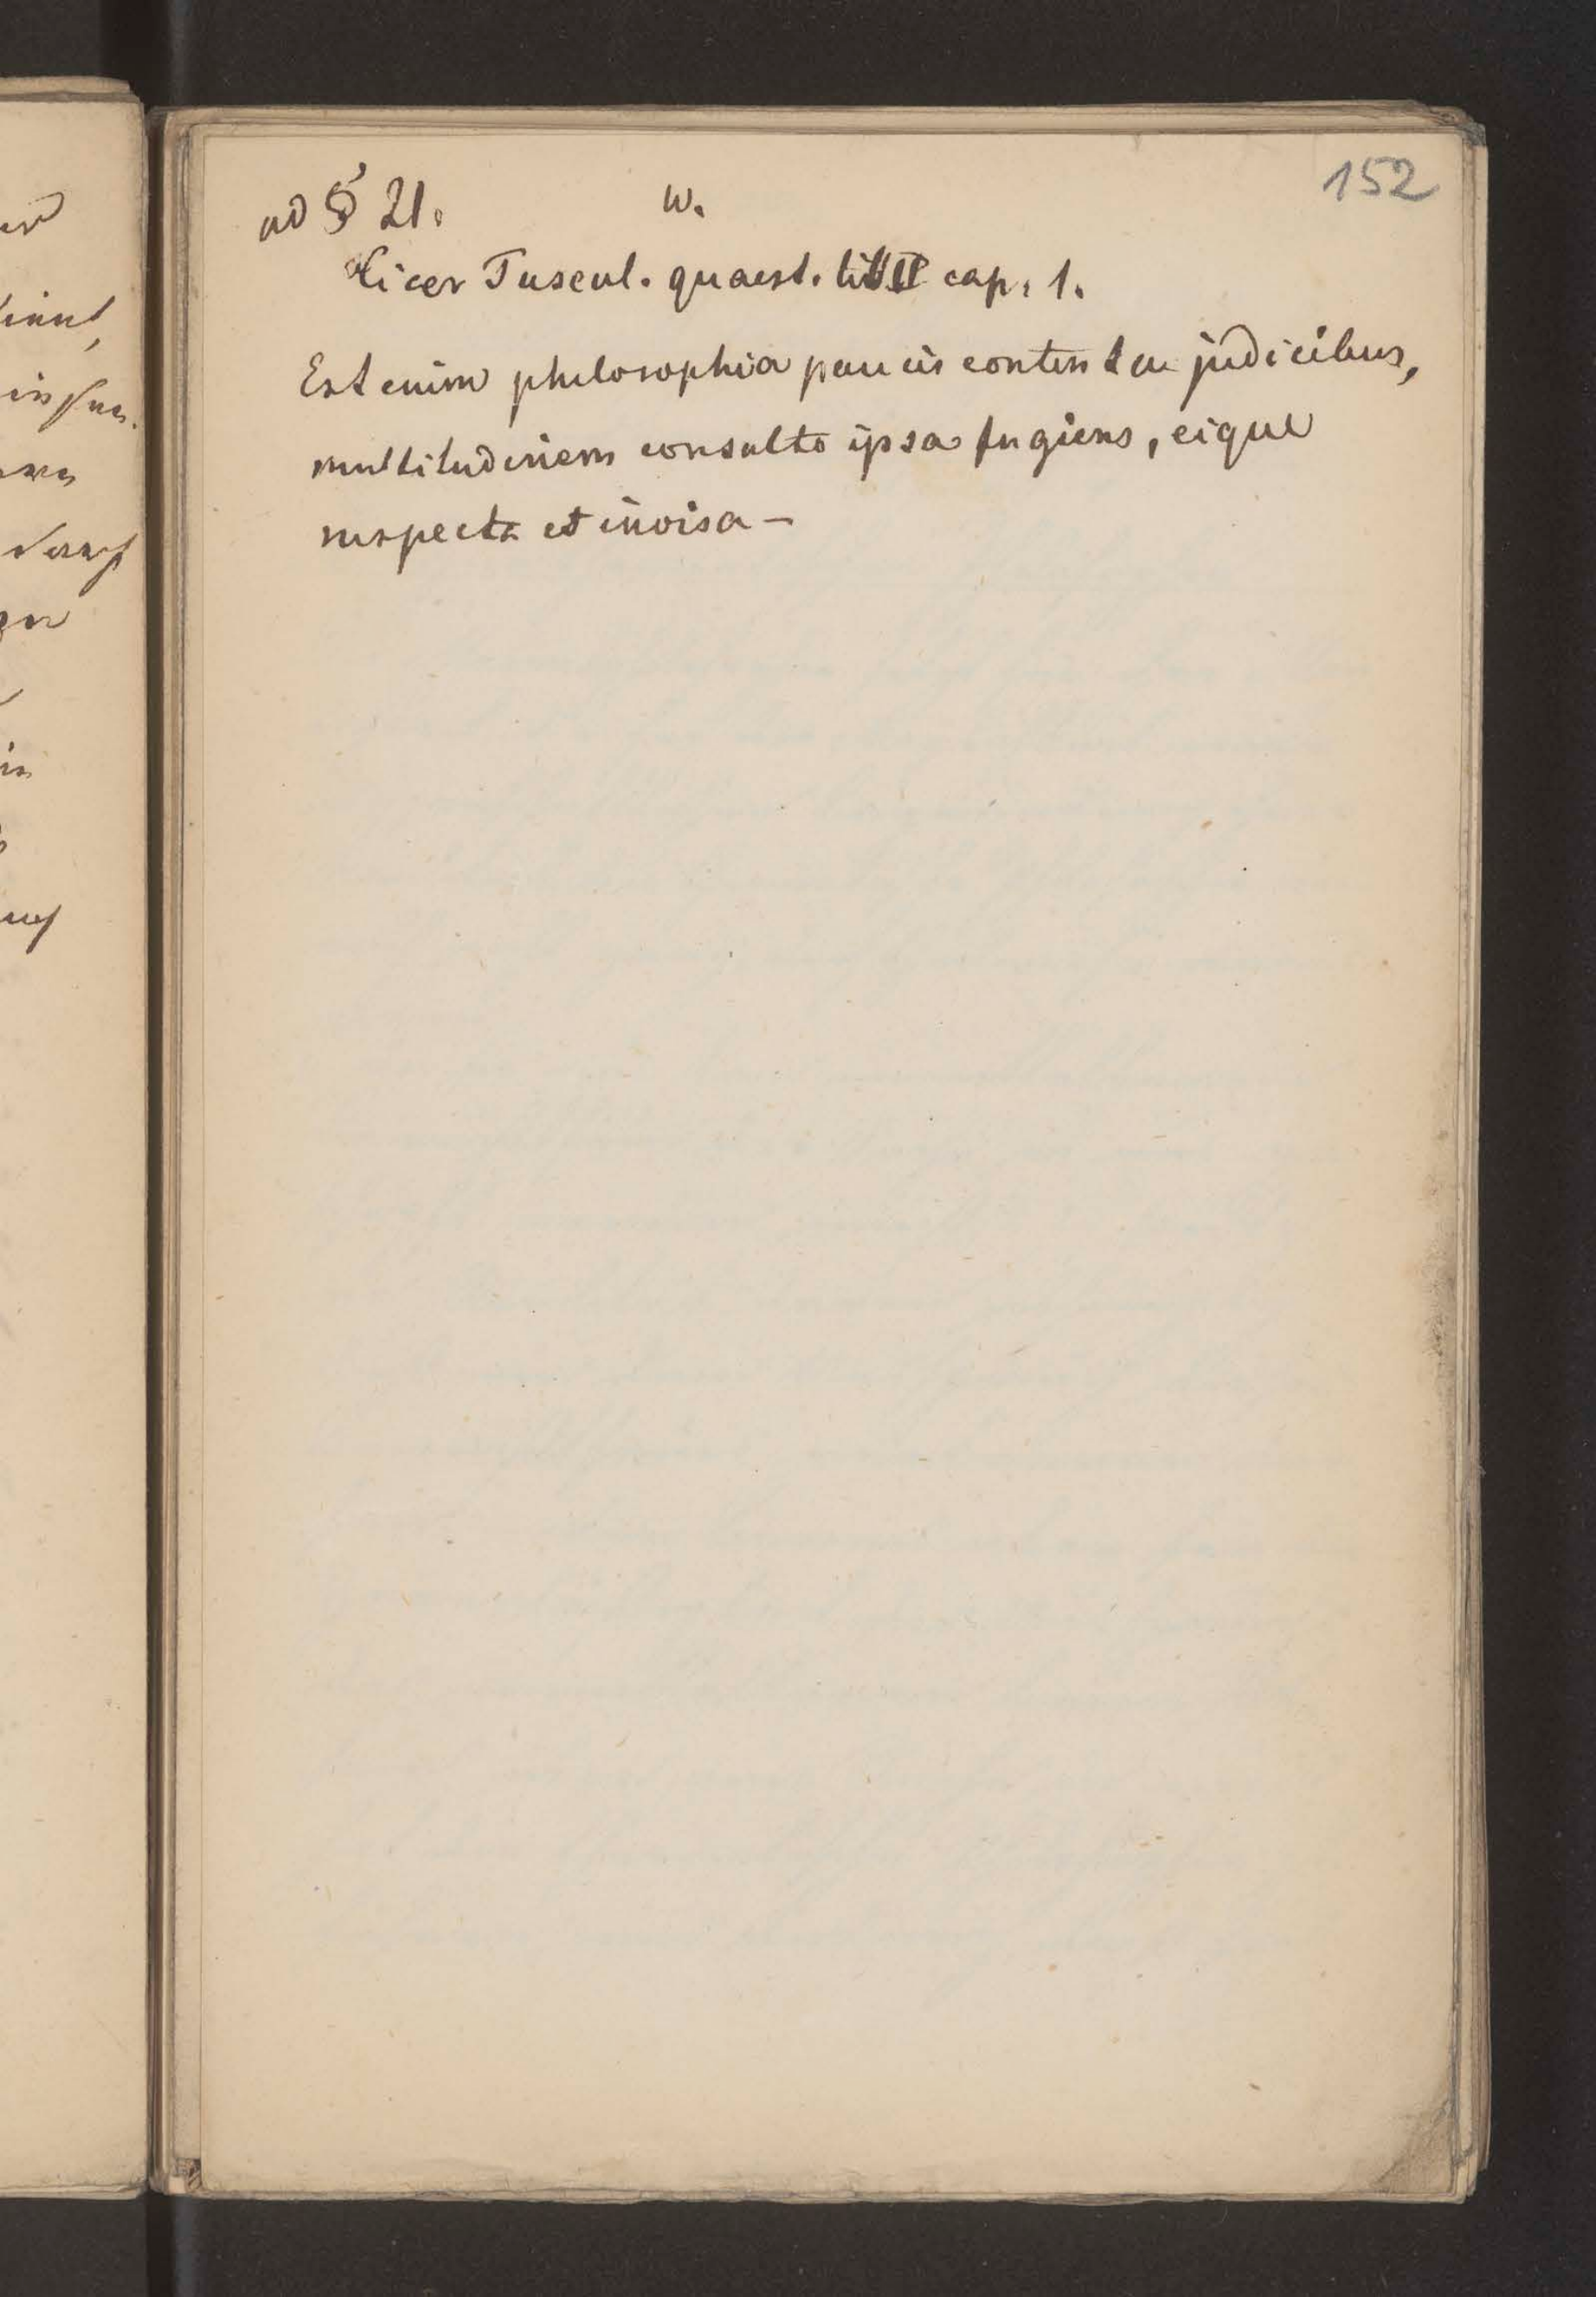 152
ad § 21. w.
Cicer Tuscul. quaest. lib II cap. 1.
Est enim philosophia paucis contenta judicibus,
multitudinem consulto ipsa fugiens, eique
suspecta et invisa –